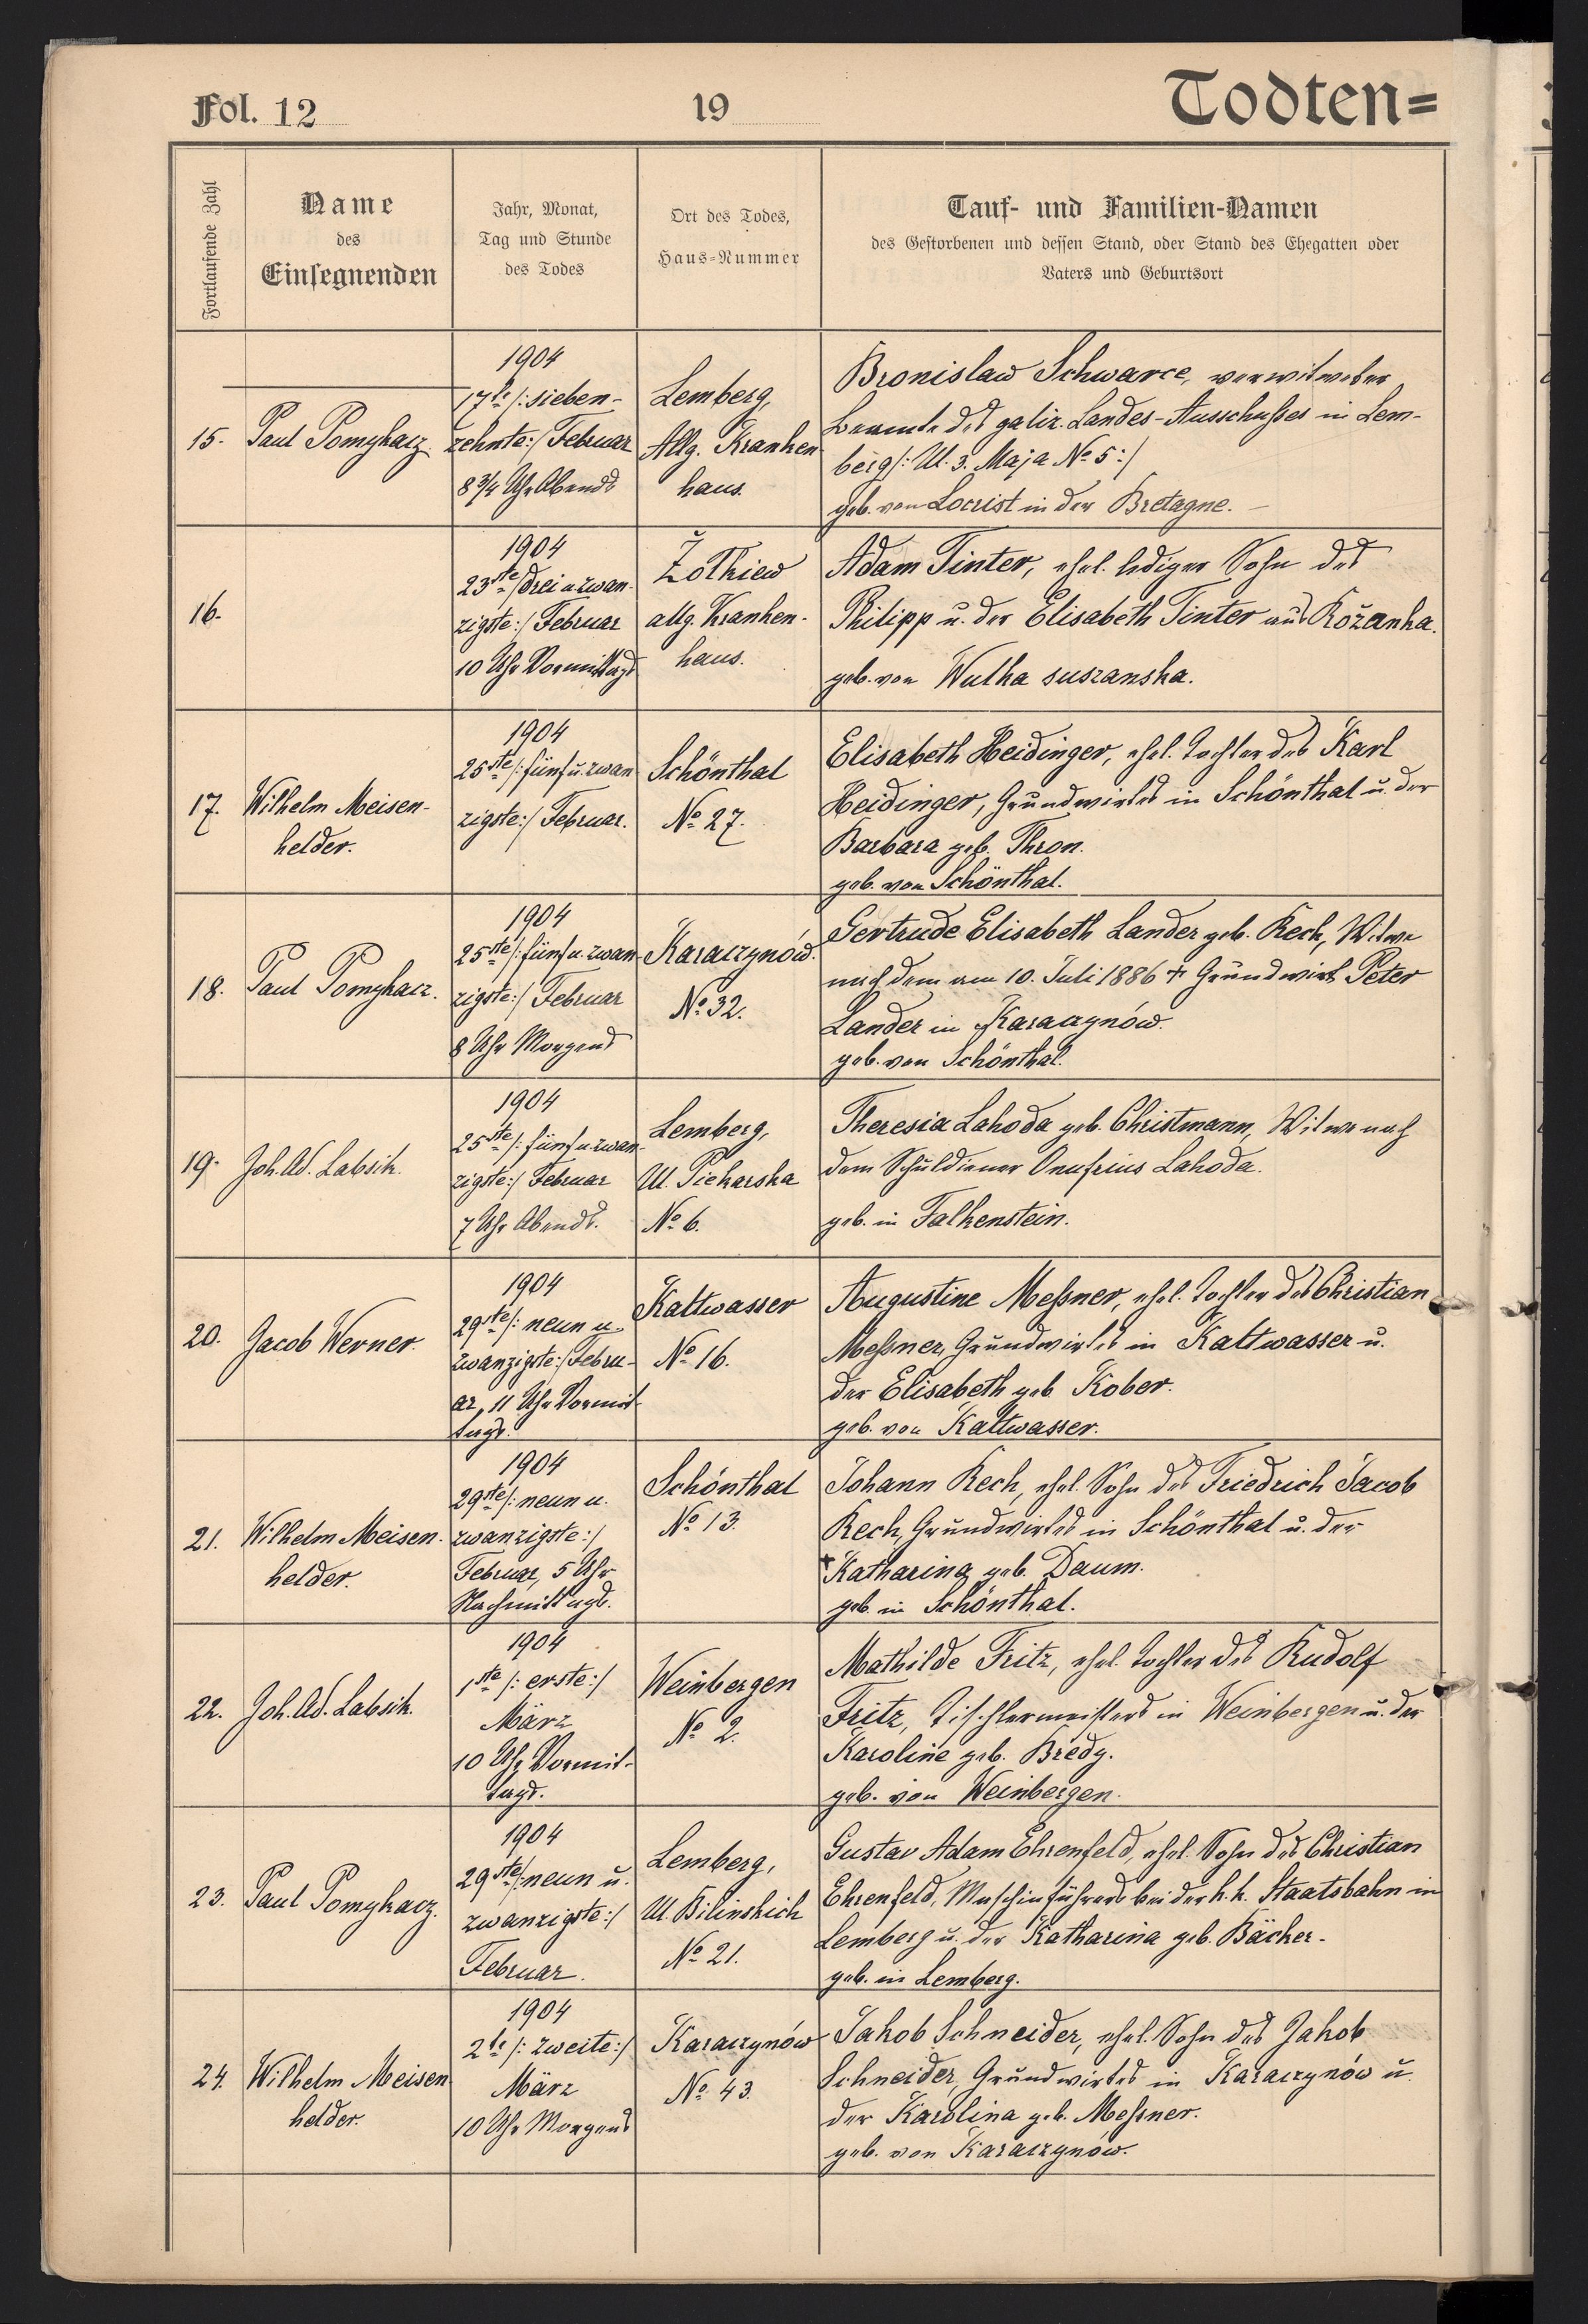 Fol. 12
19
Todten=
Fortlaufende Zahl
Name
des
Einsegnenden
Jahr, Monat,
Tag und Stunde
des Todes
Ort des Todes,
Haus-Nummer
Tauf- und Familien-Namen
des Gestorbenen und dessen Stand, oder Stand des Ehegatten oder
Vaters und Geburtsort
15.
Paul Pomykacz.
1904
17te /: sieben-
zehnte :/ Februar
8 3/4 Uhr Abends
Lemberg,
Allg. Kranken
haus.
Bronislaw Schwarce, verwitweter
Beamte des galiz. Landes-Ausschußes in Lem-
berg /: Ul. 3. Maja No 5 :/
geb. von Locrist in der Bretagne. –
16.
1904
23ste /: drei u. zwan-
zigste :/ Februar
10 Uhr Vormittags
Żołkiew
allg. Kranken-
haus.
Adam Tinter, ehel. lediger Sohn des
Philipp u. der Elisabeth Tinter aus Rożanka.
geb. von Wulka suszanska.
17.
Wilhelm Meisen-
helder.
1904
25ste /: fünf u. zwan
zigste :/ Februar.
Schönthal
No 27.
Elisabeth Heidinger, ehel. Tochter des Karl
Heidinger, Grundwirtes in Schönthal u. der
Barbara geb. Thron.
geb. von Schönthal.
18.
Paul Pomykacz.
1904
25ste /: fünf u. zwan-
zigste :/ Februar
8 Uhr Morgens
Karaczynów.
No 32.
Gertrude Elisabeth Lander geb. Kech, Witwe
nach dem am 10. Juli 1886 † Grundwirt Peter
Lander in Karaczynów.
geb. von Schönthal.
19.
Joh. Ad. Labsik.
1904
25ste /: fünf u. zwan-
zigste :/ Februar
7 Uhr Abends.
Lemberg,
Ul. Piekarska
No 6.
Theresia Lahoda geb. Christmann, Witwe nach
dem Schuldiener Onufrius Lahoda.
geb. in Falkenstein.
20.
Jacob Werner.
1904
29ste /: neun u.
zwanzigste :/ Febru-
ar, 11 Uhr Vormit-
tags.
Kaltwasser
No 16.
Augustine Meßner, ehel. Tochter des Christian
Meßner, Grundwirtes in Kaltwasser u.
der Elisabeth geb Kober.
geb. von Kaltwasser.
21.
Wilhelm Meisen-
helder.
1904
29ste /: neun u.
zwanzigste :/
Februar, 5 Uhr
Nachmittags.
Schönthal
No 13.
Johann Kech, ehel. Sohn des Friedrich Jacob
Kech, Grundwirtes in Schönthal u. der
† Katharina geb. Daum.
geb. in Schönthal.
22.
Joh. Ad. Labsik.
1904
1ste /: erste :/
März
10 Uhr Vormit-
tags.
Weinbergen
No 2.
Mathilde Fritz, ehel. Tochter des Rudolf
Fritz, Tischlermeisters in Weinbergen u. der
Karoline geb. Bredy.
geb. von Weinbergen.
23.
Paul Pomykacz.
1904
29ste /: neun u.
zwanzigste :/
Februar.
Lemberg,
Ul. Bilinskich
No 21.
Gustav Adam Ehrenfeld, ehel. Sohn des Christian
Ehrenfeld, Maschinführers bei der k. k. Staatsbahn in
Lemberg u. der Katharina geb. Bächer.
geb. in Lemberg.
24.
Wilhelm Meisen
helder.
1904
2te /: zweite :/
März
10 Uhr Morgens
Karaczynów
No 43.
Jakob Schneider, ehel. Sohn des Jakob
Schneider, Grundwirtes in Karaczynów u.
der Karolina geb. Meßner.
geb. von Karaczynów.